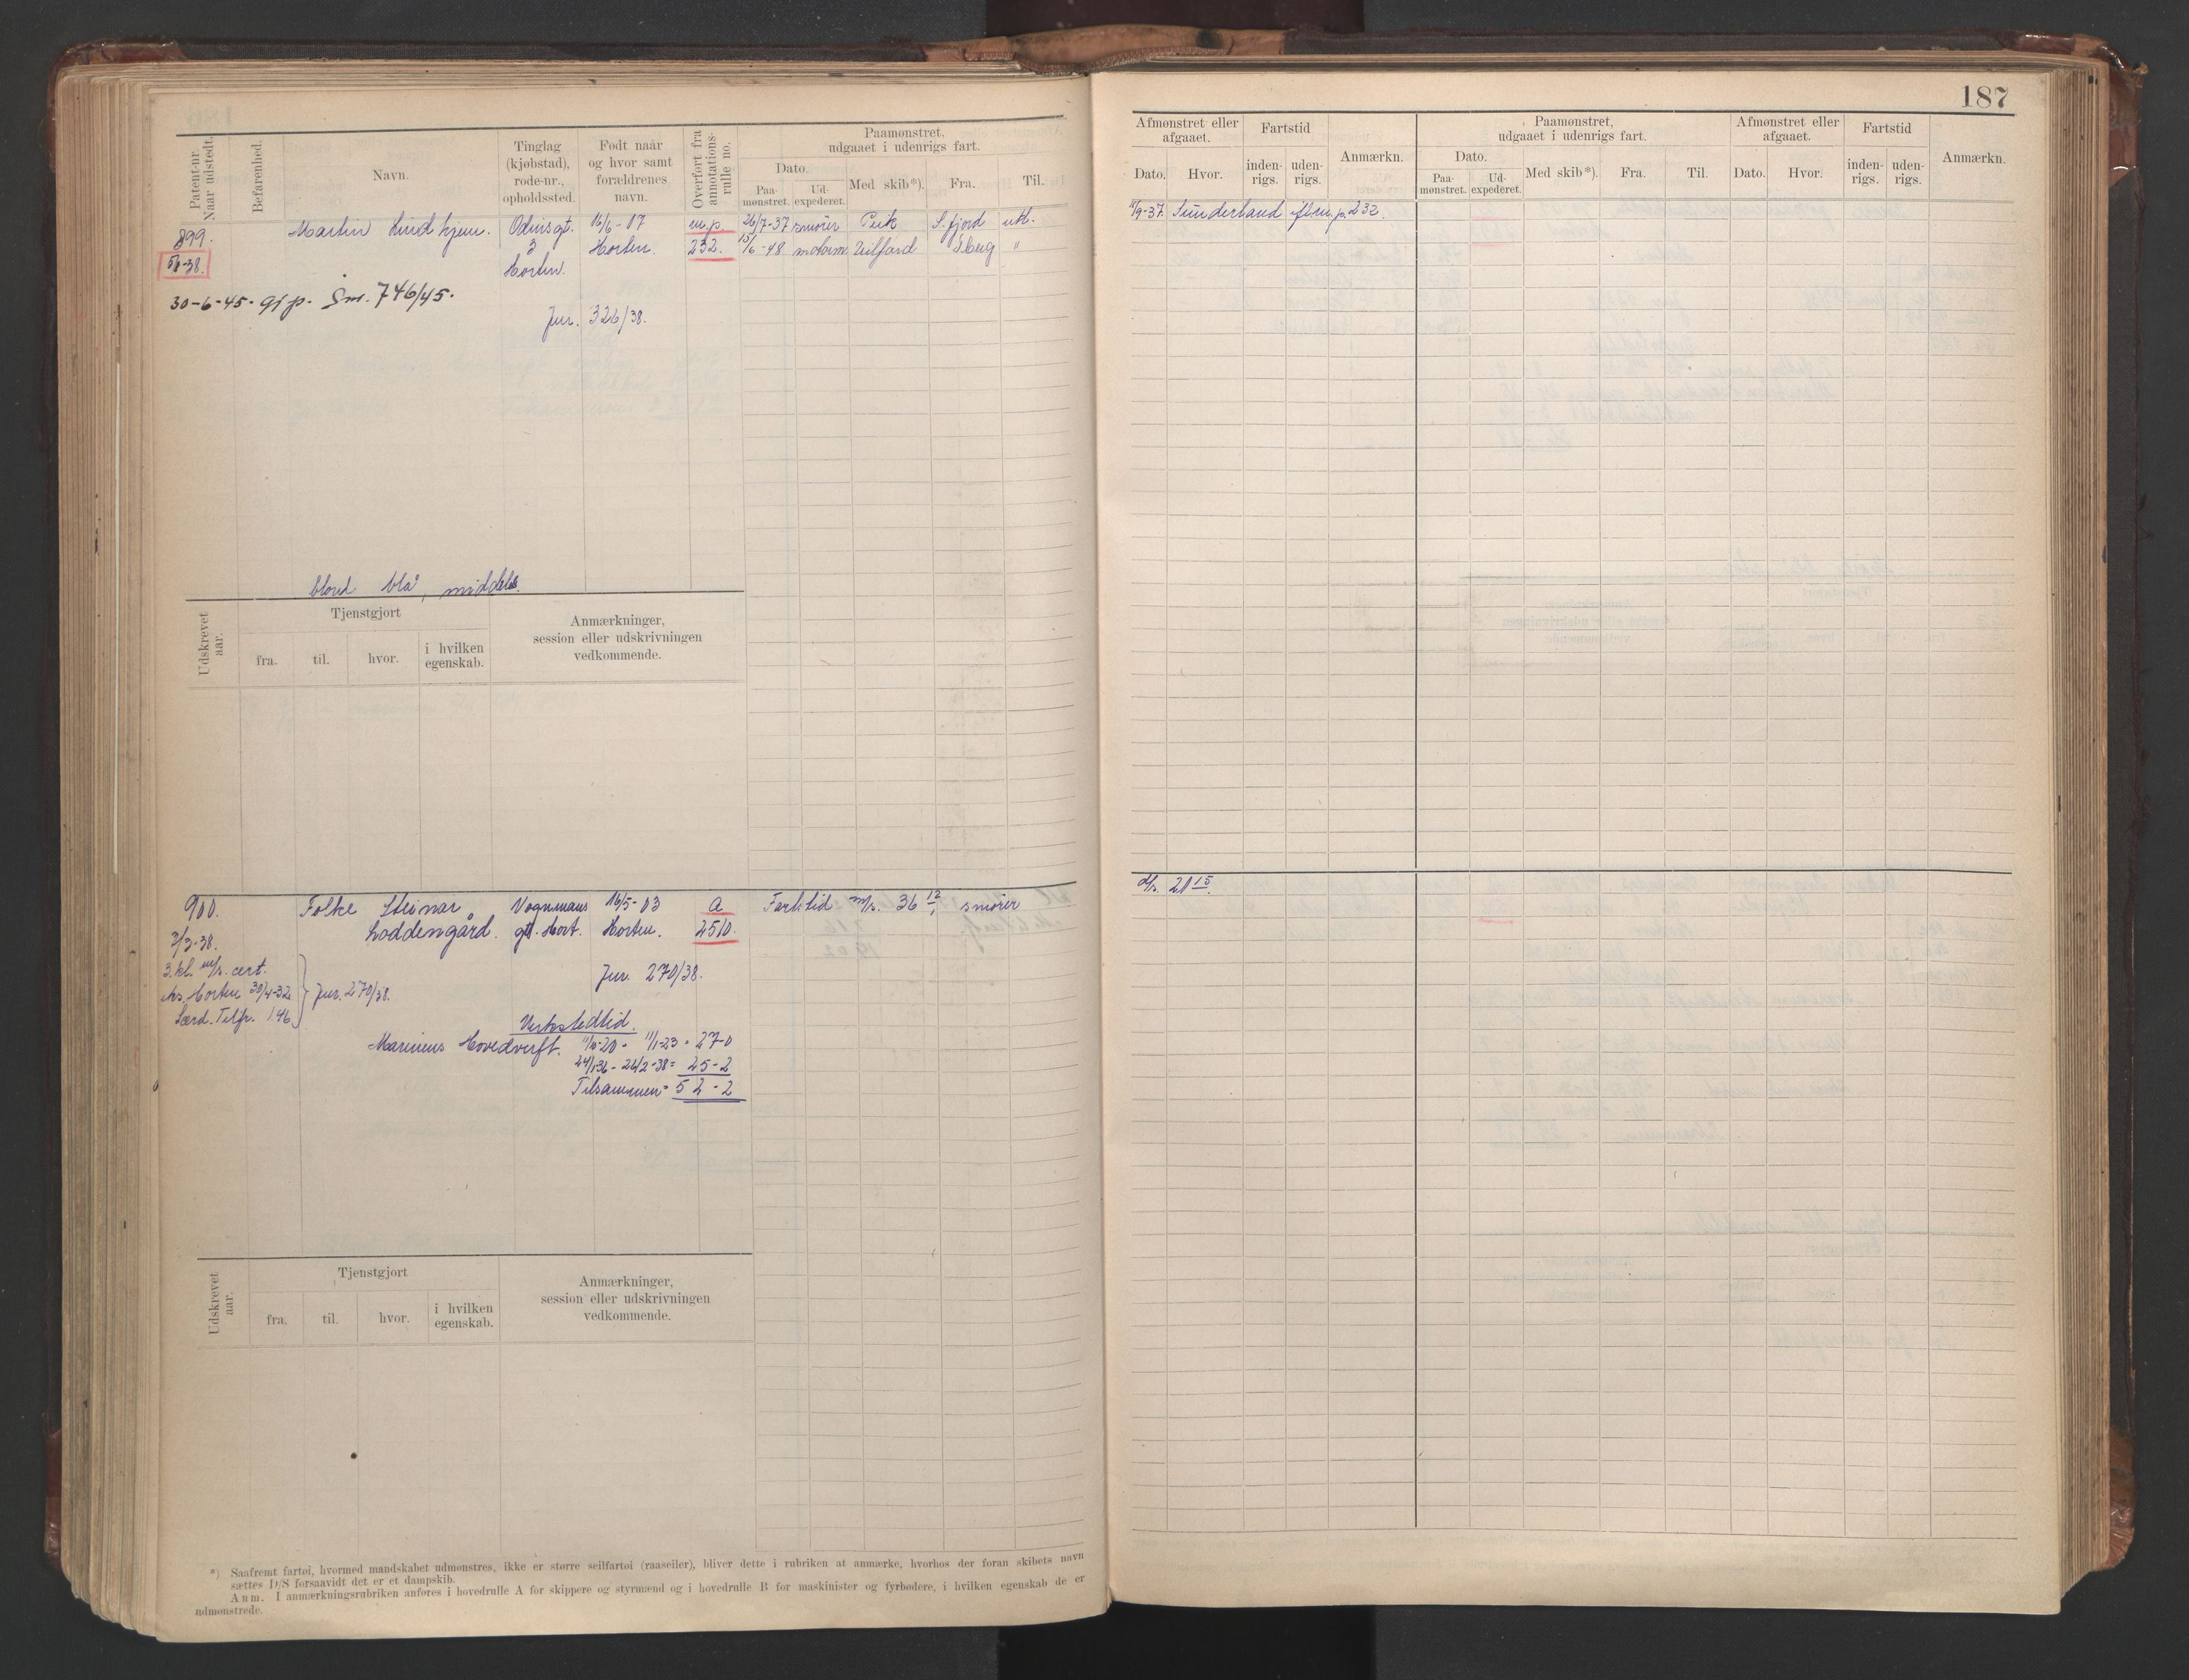 187
Patent-nr. Naar udstedt.
Befarenhed.
Navn.
Tinglag (kjøbstad), rode-nr., opholdssted.
Født naar og hvor samt forældrenes navn.
Overført fra annotations-rulle no.
Paamønstret, udgaaet i udenrigs fart.
Dato.
Paa-mønstret.
Ud-expederet.
Med skib*).
Fra.
Til.
Afmønstret eller afgaaet.
Dato.
Hvor.
Fartstid
inden-rigs.
uden-rigs.
Anmærkn.
Paamønstret, udgaaet i udenrigs fart.
Dato.
Paa-mønstret.
Ud-expederet.
Med skib*).
Fra.
Til.
Afmønstret eller afgaaet.
Dato.
Hvor.
Fartstid
inden-rigs.
uden-rigs.
Anmærkn.
899. Martin Lindhjem. Odinsgt. 16/6-07 m.p. 26/7-37 smører Peik S.fjord utl.
3 Horten. 232. 15/6-48 motorm. Vilford Tberg "
Horten.
30-6-45. gjp. Sm. 746/45.
Jur. 326/38.
11/9-37 Sunderland m.p. 232.
blond blå, middels.
Udskrevet aar.
Tjenstgjort
fra.
til.
hvor.
i hvilken egenskab.
Anmærkninger, session eller udskrivningen vedkommende.
900. Folke Steinar Vognmans 16/5-03 A Fartstid m/s. 36 12/1 smører
2/3-38. Loddengård. gt. Hort. Horten. 2510.
d/s. 21 15.
3. kl. m/s. cert.
Ms. Horten 30/4-32 Jur. 270/38.
Jur. 270/38.
146
Verkstedtid.
Marinens Hovedverft. 11/10-20 - 11/1-23 = 27-0
24/1-36 - 26/2-38 = 25-2
Tilsammen = 52-2
Udskrevet aar.
Tjenstgjort
fra.
til.
hvor.
i hvilken egenskab.
Anmærkninger, session eller udskrivningen vedkommende.
*) Saafremt fartøi, hvormed mandskabet udmønstres, ikke er større seilfartøi (raaseiler), bliver dette i rubriken at anmærke, hvorhos der foran skibets navn
sættes D/S forsaavidt det er et dampskib.
Anm. I anmærkningsrubriken anføres i hovedrulle A for skippere og styrmænd og i hovedrulle B for maskinister og fyrbødere, i hvilken egenskab de er
udmønstrede.